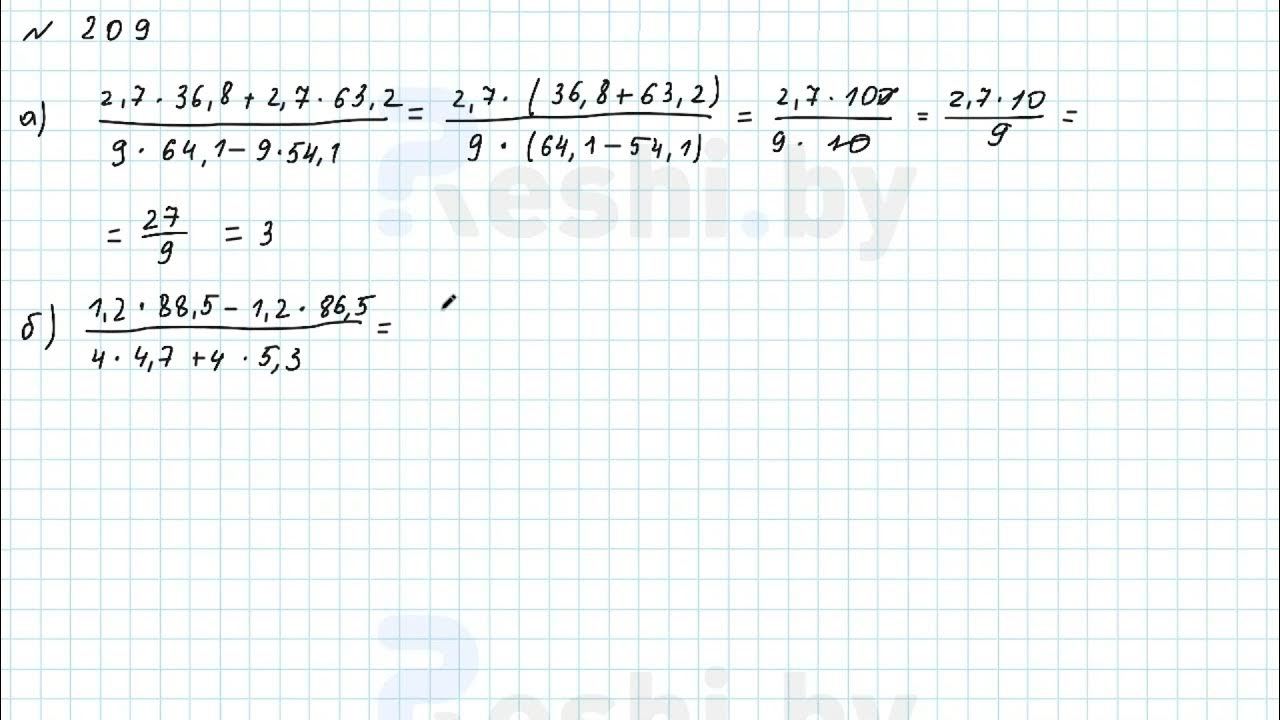 № 209
а) (2,7 · 36,8 + 2,7 · 63,2)/(9 · 64,1 – 9 · 54,1) = (2,7 · (36,8 + 63,2))/(9 · (64,1 – 54,1)) = (2,7 · 100)/(9 · 10) = (2,7 · 10)/9 =
= 27/9 = 3
б) (1,2 · 88,5 – 1,2 · 86,5)/(4 · 4,7 + 4 · 5,3) =
Reshi.by
Reshi.by